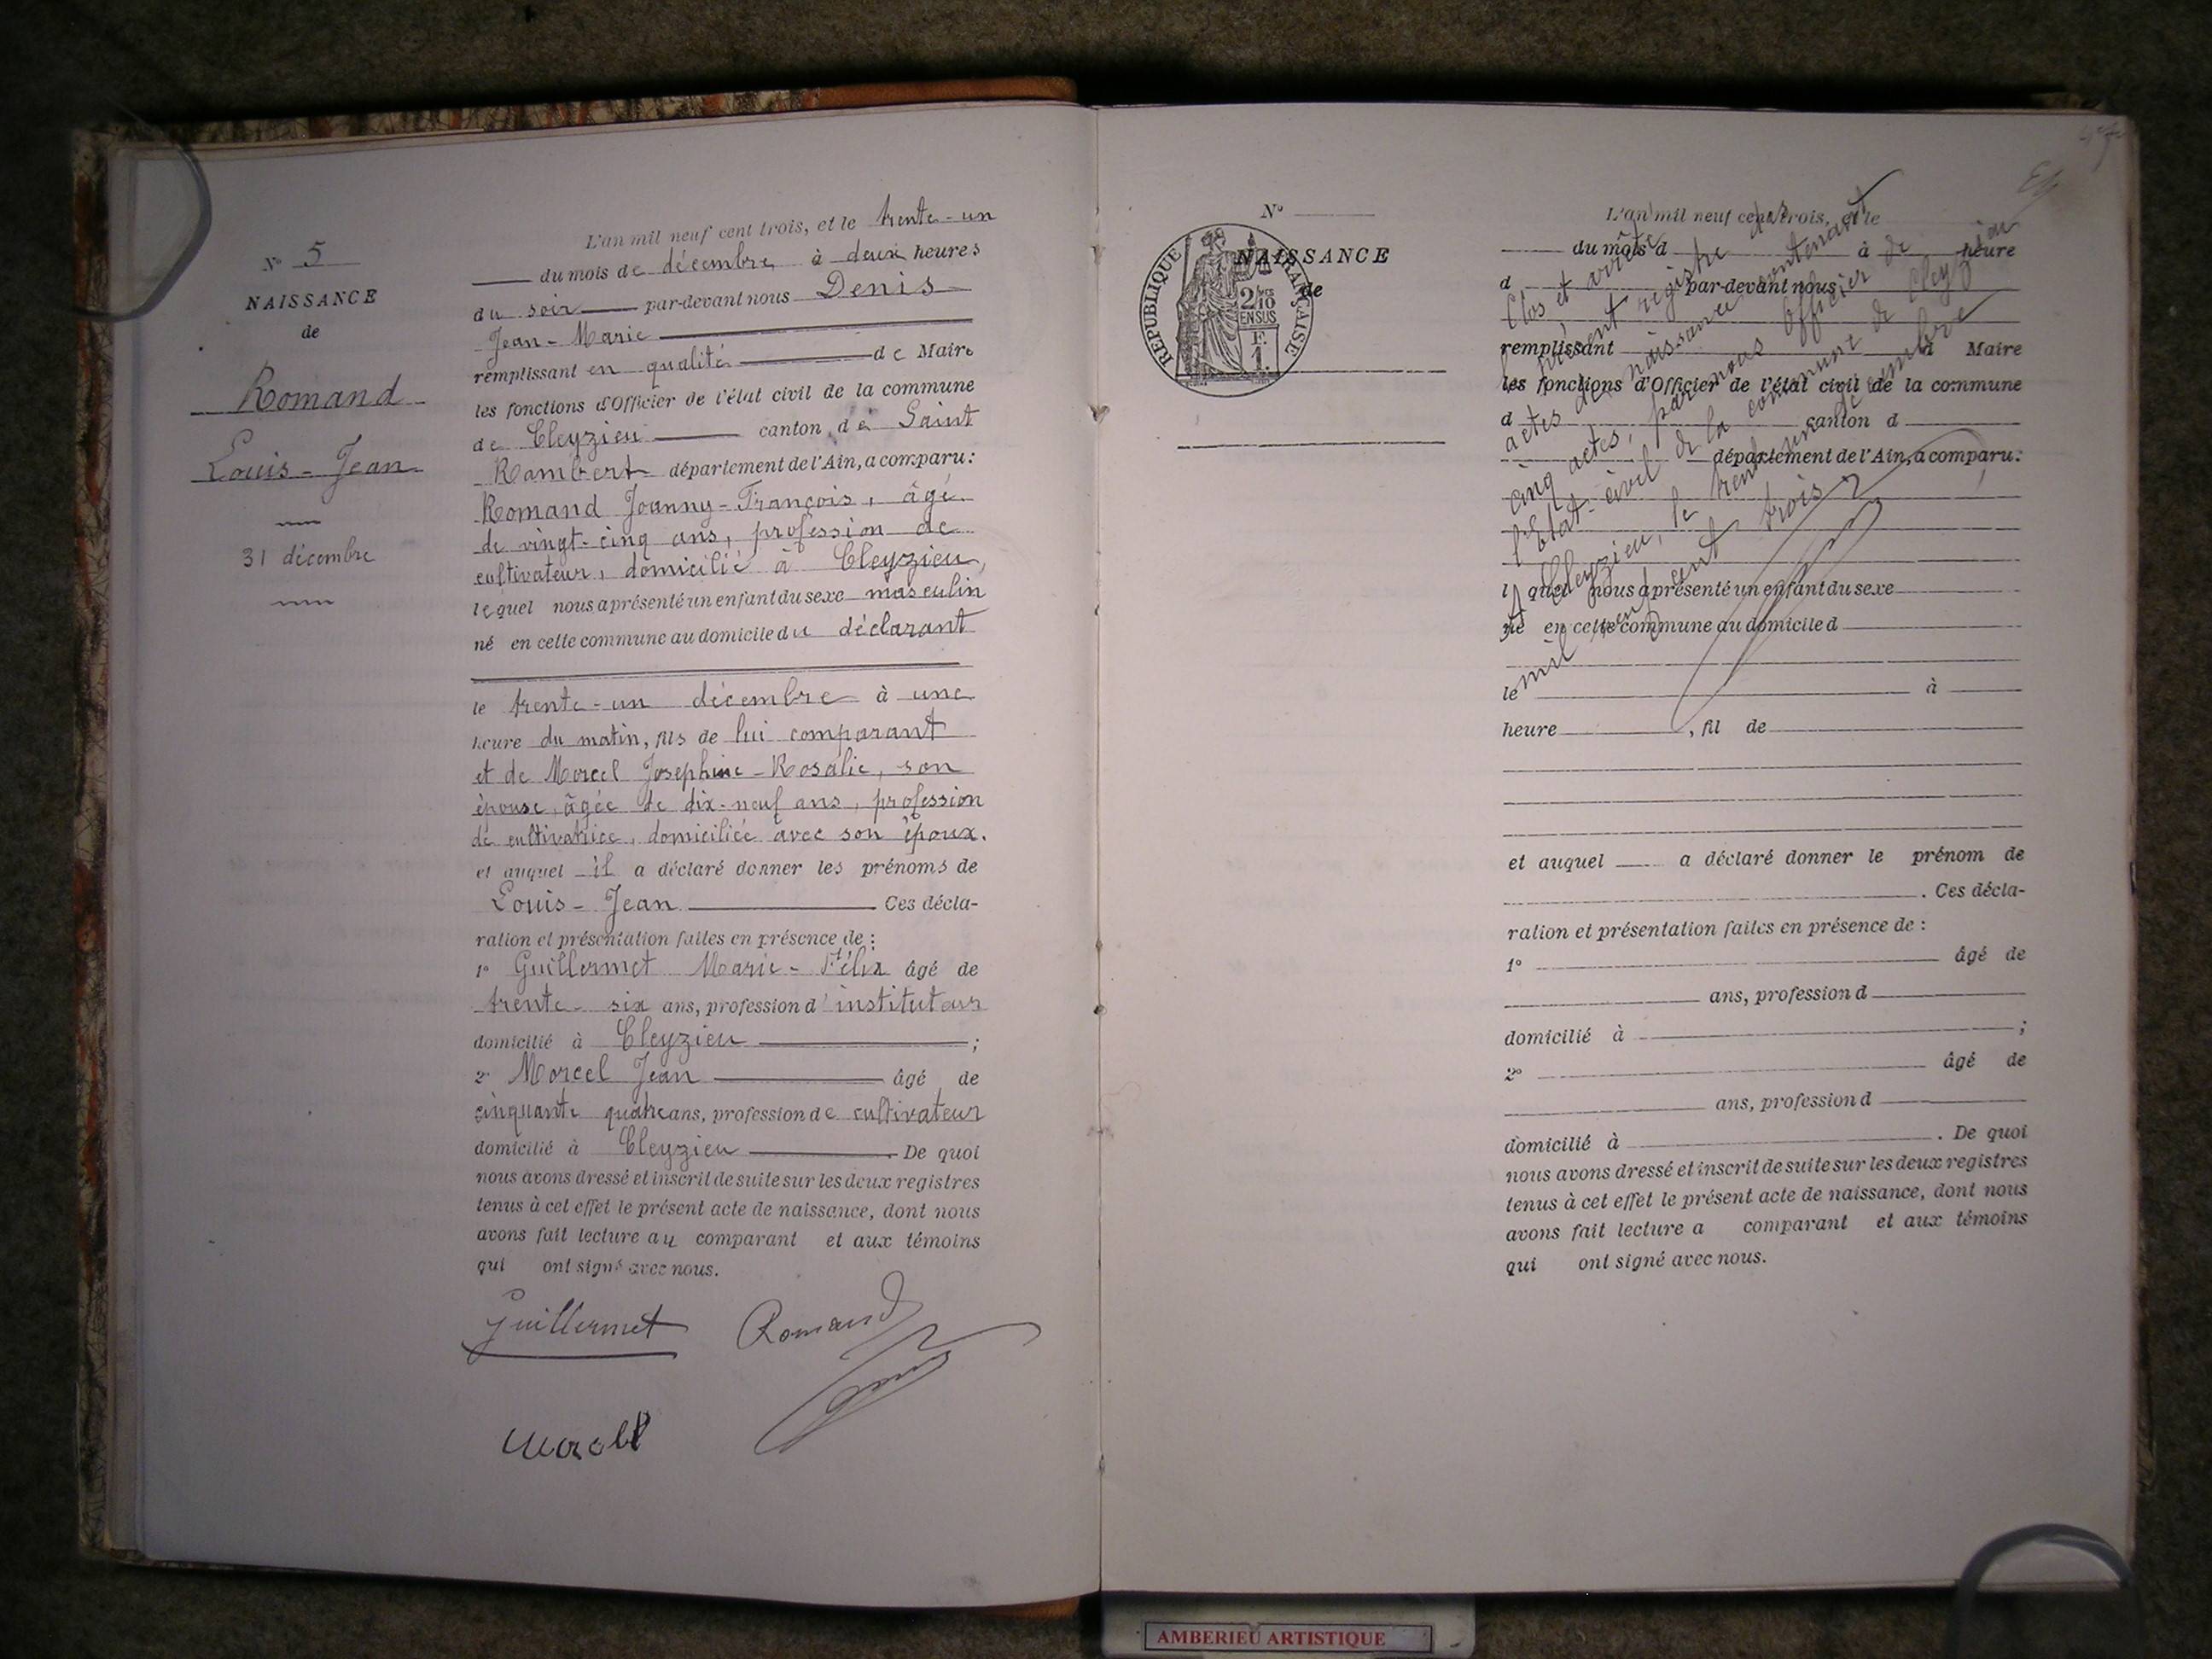 N° 5
NAISSANCE
de
Romand
Louis-Jean
31 décembre
L'an mil neuf cent trois, et le trente-un
du mois de décembre à deux heures
du soir par-devant nous Denis
Jean-Marie
remplissant en qualité de Maire
les fonctions d'Officier de l'état civil de la commune
de Cleyzieu canton de Saint
Rambert département de l'Ain, a comparu:
Romand Joanny-François, âgé
de vingt-cinq ans, profession de
cultivateur, domicilié à Cleyzieu,
lequel nous a présenté un enfant du sexe masculin
né en cette commune au domicile du déclarant
le trente-un décembre à une
heure du matin, fils de lui comparant
et de Morcel Josephine-Rosalie, son
épouse, âgée de dix-neuf ans, profession
de cultivatrice, domiciliée avec son époux.
et auquel il a déclaré donner les prénoms de
Louis-Jean Ces décla-
ration et présentation faites en présence de :
1° Guillermet Marie-Félix âgé de
trente-six ans, profession d'instituteur
domicilié à Cleyzieu ;
2° Morcel Jean âgé de
cinquante quatre ans, profession de cultivateur
domicilié à Cleyzieu . De quoi
nous avons dressé et inscrit de suite sur les deux registres
tenus à cet effet le présent acte de naissance, dont nous
avons fait lecture au comparant et aux témoins
qui ont signé avec nous.
Guillermet Romand
N°
NAISSANCE
de
REPUBLIQUE FRANÇAISE
2/10
EN SUS
F.
1.
L'an mil neuf cent trois, et le
du mois d à heure
d par-devant nous
remplissant d Maire
les fonctions d'Officier de l'état civil de la commune
d canton d
département de l'Ain, a comparu:
l quel nous a présenté un enfant du sexe
né en cette commune au domicile d
le à
heure , fil de
et auquel a déclaré donner le prénom de
. Ces décla-
ration et présentation faites en présence de :
1° âgé de
ans, profession d
domicilié à ;
2° âgé de
ans, profession d
domicilié à . De quoi
nous avons dressé et inscrit de suite sur les deux registres
tenus à cet effet le présent acte de naissance, dont nous
avons fait lecture a comparant et aux témoins
qui ont signé avec nous.
Clos et arrêté
présent registre des
actes de naissance contenant
cinq actes, par nous Officier de
l'Etat-civil de la commune de Cleyzieu
à Cleyzieu, le trente-un décembre
mil neuf cent trois
AMBERIEU ARTISTIQUE